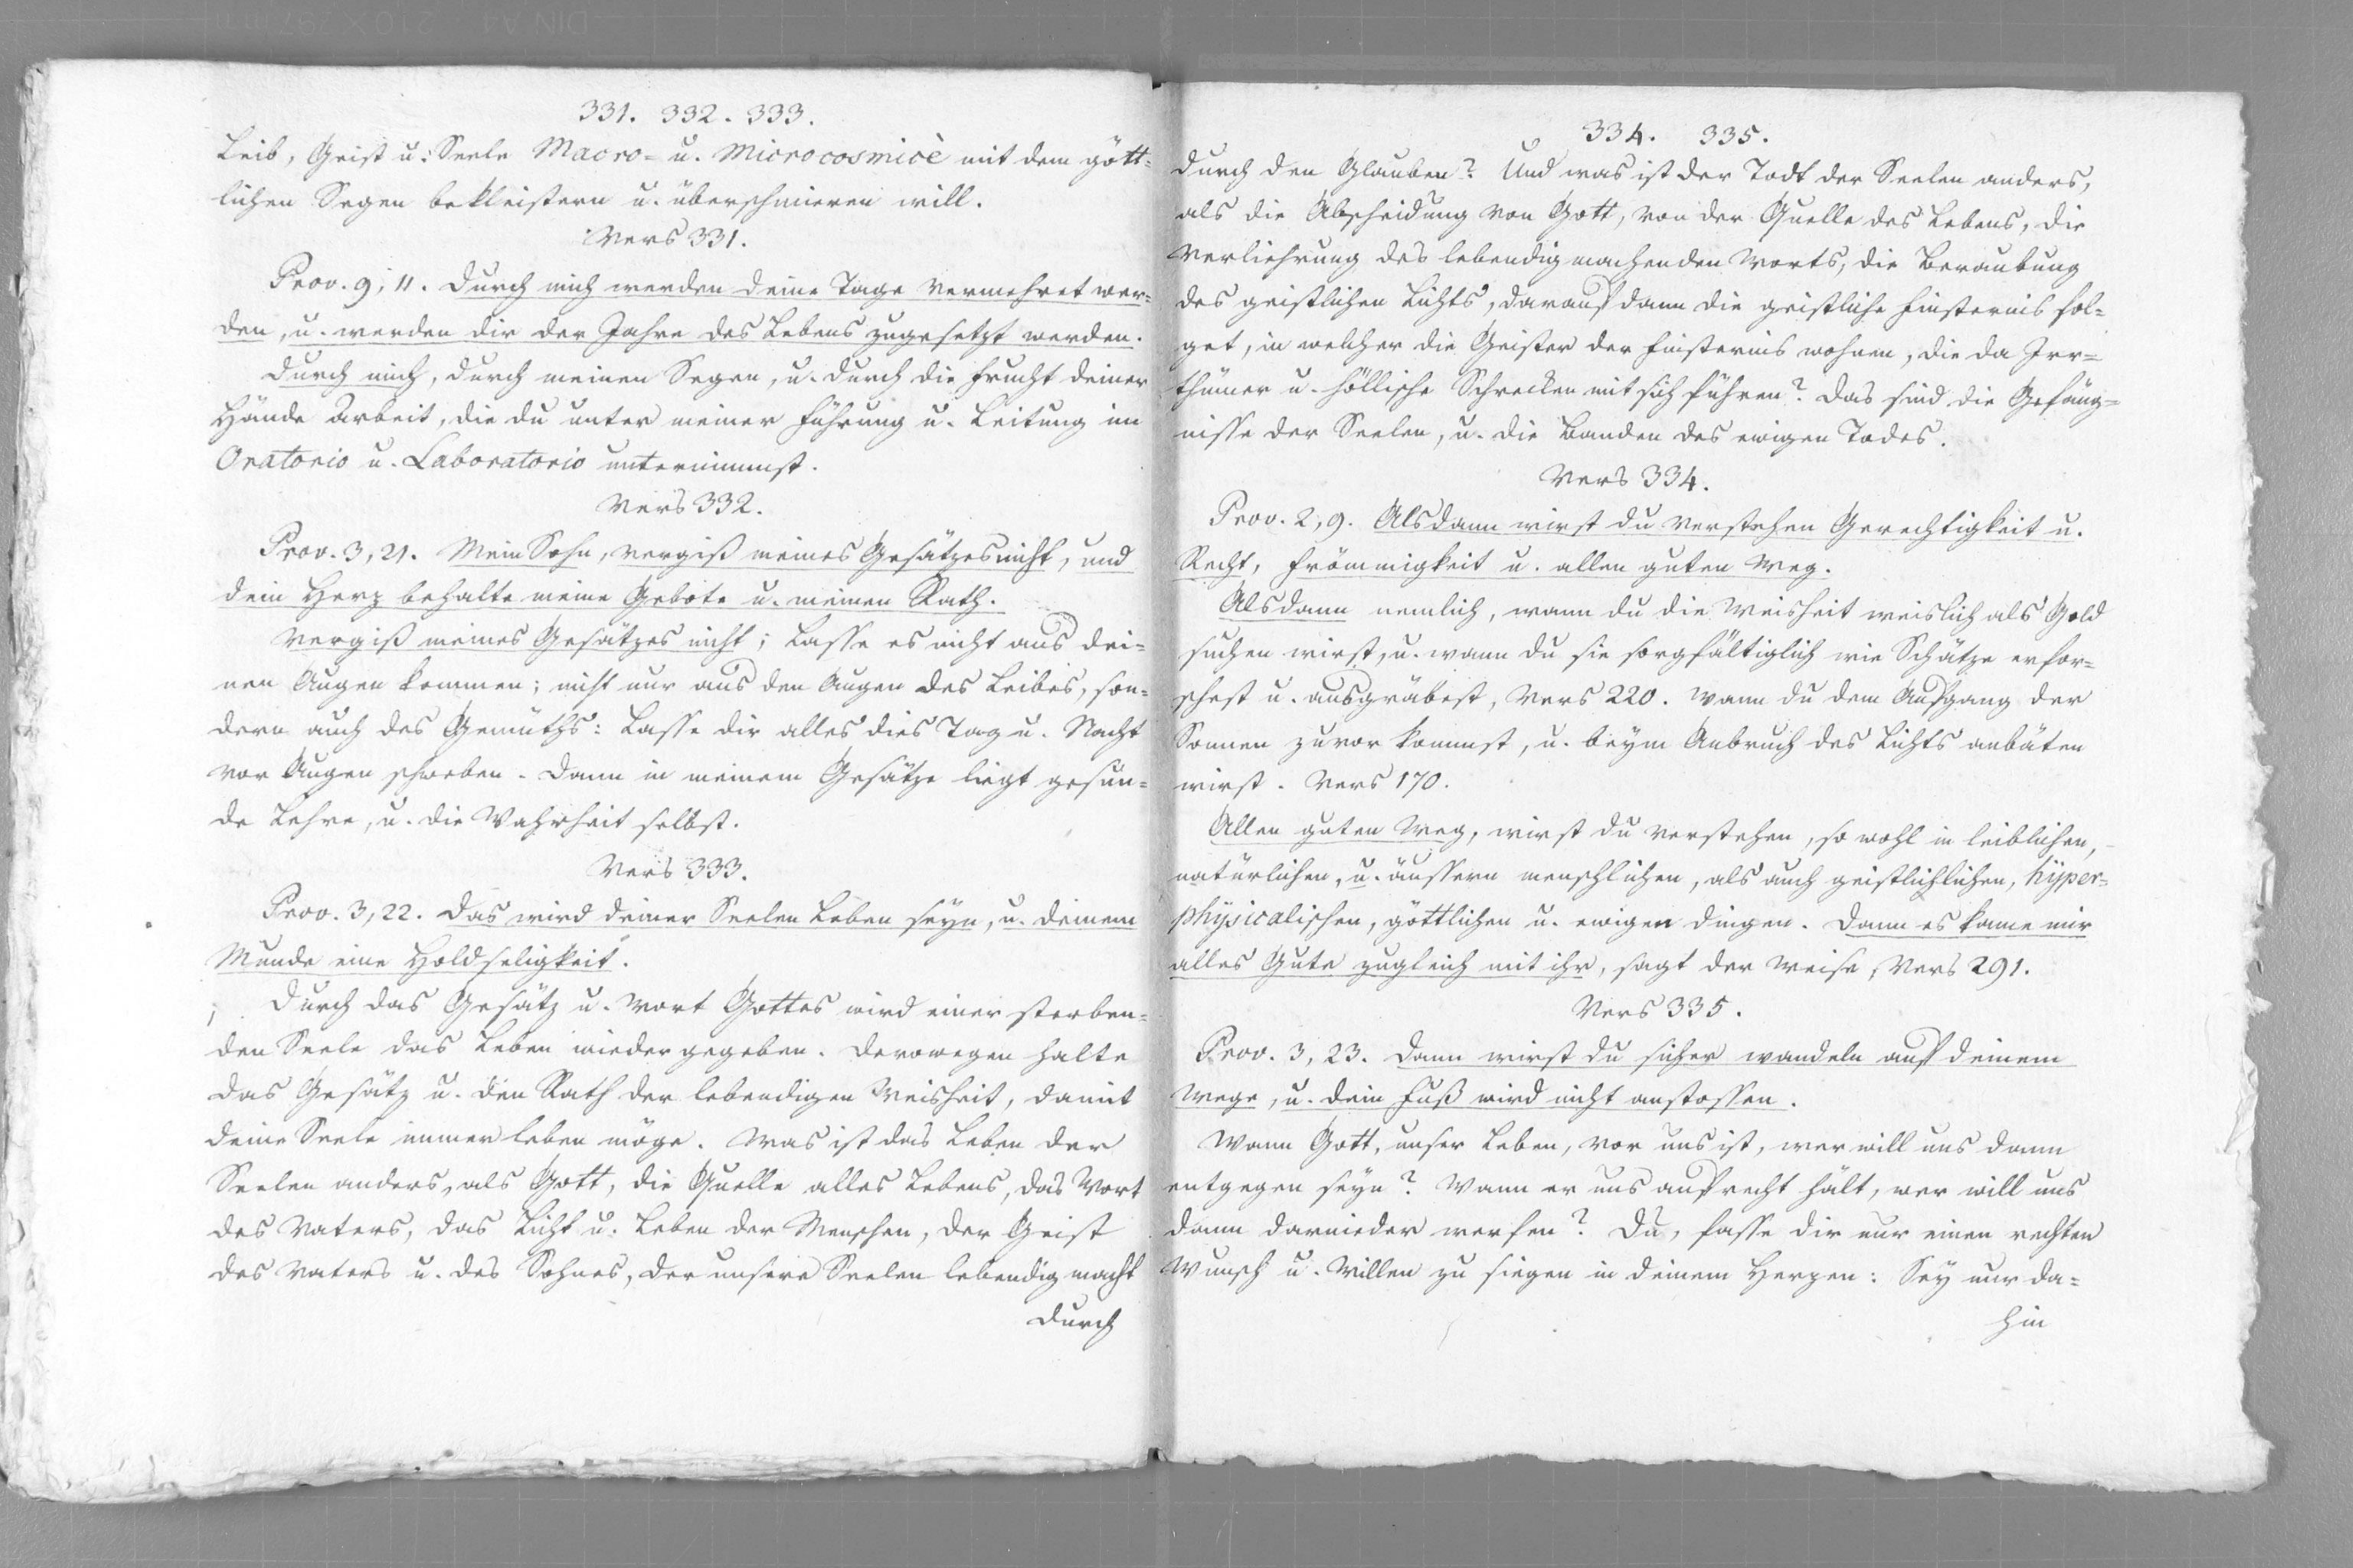 331. 332. 333.
Leib, Geist u. Seele Macro- u. Microcosmicè mit dem gött=
lichen Segen bekleistern u. überschmieren will.
Vers 331.
Prov. 9, 11. Durch mich werden deine Tage vermehret wer=
den, u. werden dir der Jahre des Lebens zugesetzt werden.
Durch mich, durch meinen Segen, u. durch die Frucht deiner
Hände Arbeit, die du unter meiner Führung u. Leitung im
Oratorio u. Laboratorio unternimmst.
Vers 332.
Prov. 3, 21. Mein Sohn, vergiß meines Gesätzes nicht, und
dein Herz behalte meine Gebote u. meinen Rath.
Vergiß meines Gesätzes nicht; Lasse es nicht aus dei=
nen Augen kommen; nicht nur aus den Augen des Leibes, son=
dern auch des Gemüths: Lasse dir alles dies Tag u. Nacht
vor Augen schweben. Dann in meinem Gesätze liegt gesun=
de Lehre, u. die Wahrheit selbst.
Vers 333.
Prov. 3, 22. Das wird deiner Seelen Leben seyn, u. deinem
Munde eine Holdseligkeit.
Durch das Gesätz u. Wort Gottes wird einer sterben=
den Seele das Leben wieder gegeben. Derowegen halte
das Gesätz u. den Rath der lebendigen Weisheit, damit
deine Seele immer leben möge. Was ist das Leben der
Seelen anders, als Gott, die Quelle alles Lebens, das Wort
des Vaters, das Licht u. Leben der Menschen, der Geist
des Vaters u. des Sohnes, der unsere Seelen lebendig macht
durch
334. 335.
durch den Glauben? Und was ist der Todt der Seelen anders,
als die Abscheidung von Gott, von der Quelle des Lebens, die
Verliehrung des lebendigmachenden Worts, die Beraubung
des geistlichen Lichts, darauf dann die geistliche Finsternis fol=
get, in welcher die Geister der Finsternis wohnen, die da Irr=
thümer u. höllische Schrecken mit sich führen? Das sind die Gefäng=
nisse der Seelen, u. die Banden des ewigen Todes.
Vers 334.
Prov. 2, 9. Alsdann wirst du verstehen Gerechtigkeit u.
Recht, Frömmigkeit u. allen guten Weg.
Alsdann nemlich, wann du die Weisheit weislich als Gold
suchen wirst, u. wann du sie sorgfältiglich wie Schätze erfor=
schest u. ausgräbest, Vers 220. Wann du dem Aufgang der
Sonnen zuvor kommst, u. beym Anbruch des Lichts anbäten
wirst. Vers 170.
Allen guten Weg, wirst du verstehen, so wohl in leiblichen,
natürlichen, u. äussern menschlichen, als auch geistlichlichen, hÿper=
phÿsicalischen, göttlichen u. ewigen Dingen. Dann es kame mir
alles Gute zugleich mit ihr, sagt der Weise, Vers 291.
Vers 335.
Prov. 3, 23. Dann wirst du sicher wandeln auf deinem
Wege, u. dein Fuß wird nicht anstossen.
Wann Gott, unser Leben, vor uns ist, wer will uns dann
entgegen seyn? Wann er uns aufrecht hält, wer will uns
dann darnieder werfen? Du, fasse dir nur einen rechten
Wunsch u. Willen zu siegen in deinem Herzen: Sey nur da=
hin